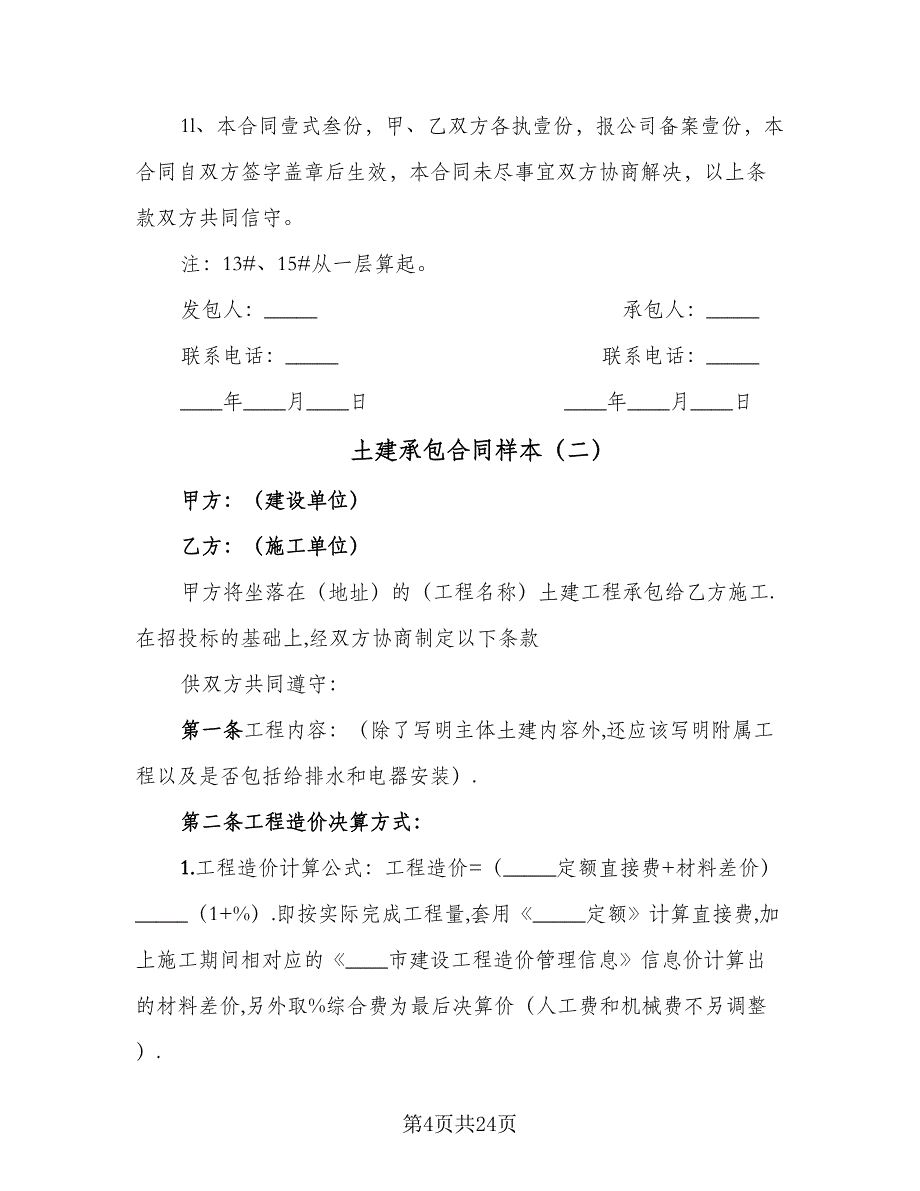 1l、本合同壹式叁份，甲、乙双方各执壹份，报公司备案壹份，本
合同自双方签字盖章后生效，本合同未尽事宜双方协商解决，以上条
款双方共同信守。
注：13#、15#从一层算起。
发包人：_____ 承包人：_____
联系电话：_____ 联系电话：_____
____年____月____日 ____年____月____日
土建承包合同样本（二）
甲方：（建设单位）
乙方：（施工单位）
甲方将坐落在（地址）的（工程名称）土建工程承包给乙方施工.
在招投标的基础上,经双方协商制定以下条款
供双方共同遵守：
第一条工程内容：（除了写明主体土建内容外,还应该写明附属工
程以及是否包括给排水和电器安装）.
第二条工程造价决算方式：
1.工程造价计算公式：工程造价=（_____定额直接费+材料差价）
_____（1+%）.即按实际完成工程量,套用《_____定额》计算直接费,加
上施工期间相对应的《____市建设工程造价管理信息》信息价计算出
的材料差价,另外取%综合费为最后决算价（人工费和机械费不另调整
）.
第4页共24页